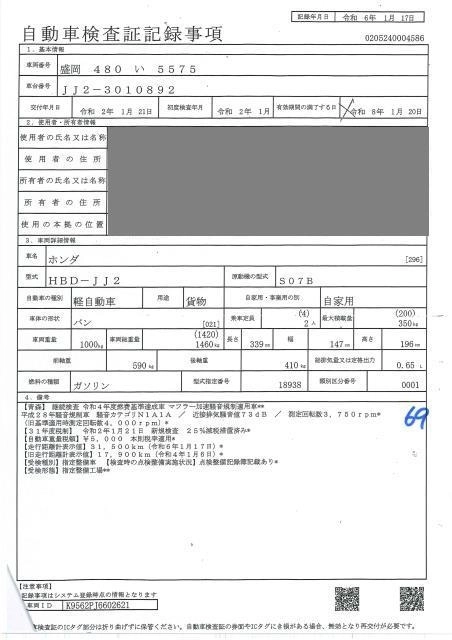 記録年月日 令和 6年 1月 17日
自動車検査証記録事項
0205240004586
1．基本情報
車両番号 盛岡 480 い 5575
車台番号 JJ2-3010892
交付年月日 令和 2年 1月 21日 初度検査年月 令和 2年 1月 有効期間の満了する日 令和 8年 1月 20日
2．使用者・所有者情報
使用者の氏名又は名称
使用者の住所
所有者の氏名又は名称
所有者の住所
使用の本拠の位置
3．車両詳細情報
車名 ホンダ [296]
型式 HBD-JJ2 原動機の型式 S07B
自動車の種別 軽自動車 用途 貨物 自家用・事業用の別 自家用
車体の形状 バン [021] 乗車定員 (4) 2人 最大積載量 (200) 350kg
車両重量 1000kg 車両総重量 (1420) 1460kg 長さ 339cm 幅 147cm 高さ 196cm
前軸重 590kg 後軸重 410kg 総排気量又は定格出力 0.65 L
燃料の種類 ガソリン 型式指定番号 18938 類別区分番号 0001
4．備考
【青森】 継続検査 令和4年度燃費基準達成車 マフラー加速騒音規制適用車**
平成28年騒音規制車 騒音カテゴリN1A1A ／ 近接排気騒音値73dB ／ 測定回転数3，750rpm*
（旧基準適用時測定回転数4，000rpm）*
【31年度税制】 令和2年1月21日 新規検査 25%減税措置済み*
【自動車重量税額】¥5，000 本則税率適用*
【走行距離計表示値】31，500km（令和6年1月17日）*
【旧走行距離計表示値】17，900km（令和4年1月6日）*
【受検種別】指定整備車 【検査時の点検整備実施状況】点検整備記録簿記載あり*
【受検形態】指定整備工場**
69
【注意事項】
記録事項はシステム登録時点の情報となります
車両ID K9562PJ6602621
車検査証のICタグ部分は折り曲げずに保管ください。自動車検査証の券面やICタグにき損がある場合、無効となり再交付が必要です。